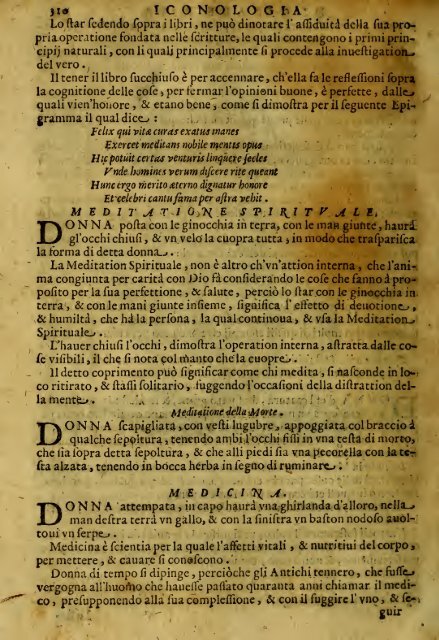 310 ICONOLOGIA
Lo star sedendo sopra i libri, ne può dinotare l'assiduità della sua pro-
pria operatione fondata nelle scritture, le quali contengono i primi prin-
cipij naturali, con li quali principalmente si procede alla inuestigation
del vero.
Il tener il libro succhiuso è per accennare, ch'ella fa le reflessioni sopra
la cognitione delle cose, per fermar l'opinioni buone, è perfette, dalle
quali vien'honore, & etano bene, come si dimostra per il seguente Epi-
gramma il qual dice:
Felix qui vitæ curas exutus manes
Exercet meditans nobile mentis opus
Hic potuit certus venturis linquere secles
Vnde homines verum discere rite queant
Hunc ergo merito æterno dignatur honore
Et celebri cantu fama per astra vehit.
MEDITATIONE SPIRITVALE.
DONNA posta con le ginocchia in terra, con le man giunte, haurà
gl'occhi chiusi, & vn velo la cuopra tutta, in modo che trasparisca
la forma di detta donna.
La Meditation Spirituale, non è altro ch'vn'attion interna, che l'ani-
ma congiunta per carità con Dio fà considerando le cose che fanno à pro-
posito per la sua perfettione, & salute, perciò lo star con le ginocchia in
terra, & con le mani giunte insieme, significa l'effetto di deuotione,
& humiltà, che hà la persona, la qual continoua, & vsa la Meditation
Spirituale.
L'hauer chiusi l'occhi, dimostra l'operation interna, astratta dalle co-
se visibili, il che si nota col manto che la cuopre.
Il detto coprimento può significar come chi medita, si nasconde in lo-
co ritirato, & stassi solitario, fuggendo l'occasioni della distrattion del-
la mente.
Meditatione della Morte.
DONNA scapigliata, con vesti lugubre, appoggiata col braccio à
qualche sepoltura, tenendo ambi l'occhi fissi in vna testa di morto,
che sia sopra detta sepoltura, & che alli piedi sia vna pecorella con la te-
sta alzata, tenendo in bocca herba in segno di ruminare.
MEDICINA.
DONNA attempata, in capo haurà vna ghirlanda d'alloro, nella
man destra terrà vn gallo, & con la sinistra vn baston nodoso auol-
toui vn serpe.
Medicina è scientia per la quale l'affetti vitali, & nutritiui del corpo,
per mettere, & cauare si conoscono.
Donna di tempo si dipinge, perciòche gli Antichi tennero, che fusse
vergogna all'huomo che hauesse passato quaranta anni chiamar il medi-
co, presupponendo alla sua complessione, & con il fuggire l'vno, & se-
guir